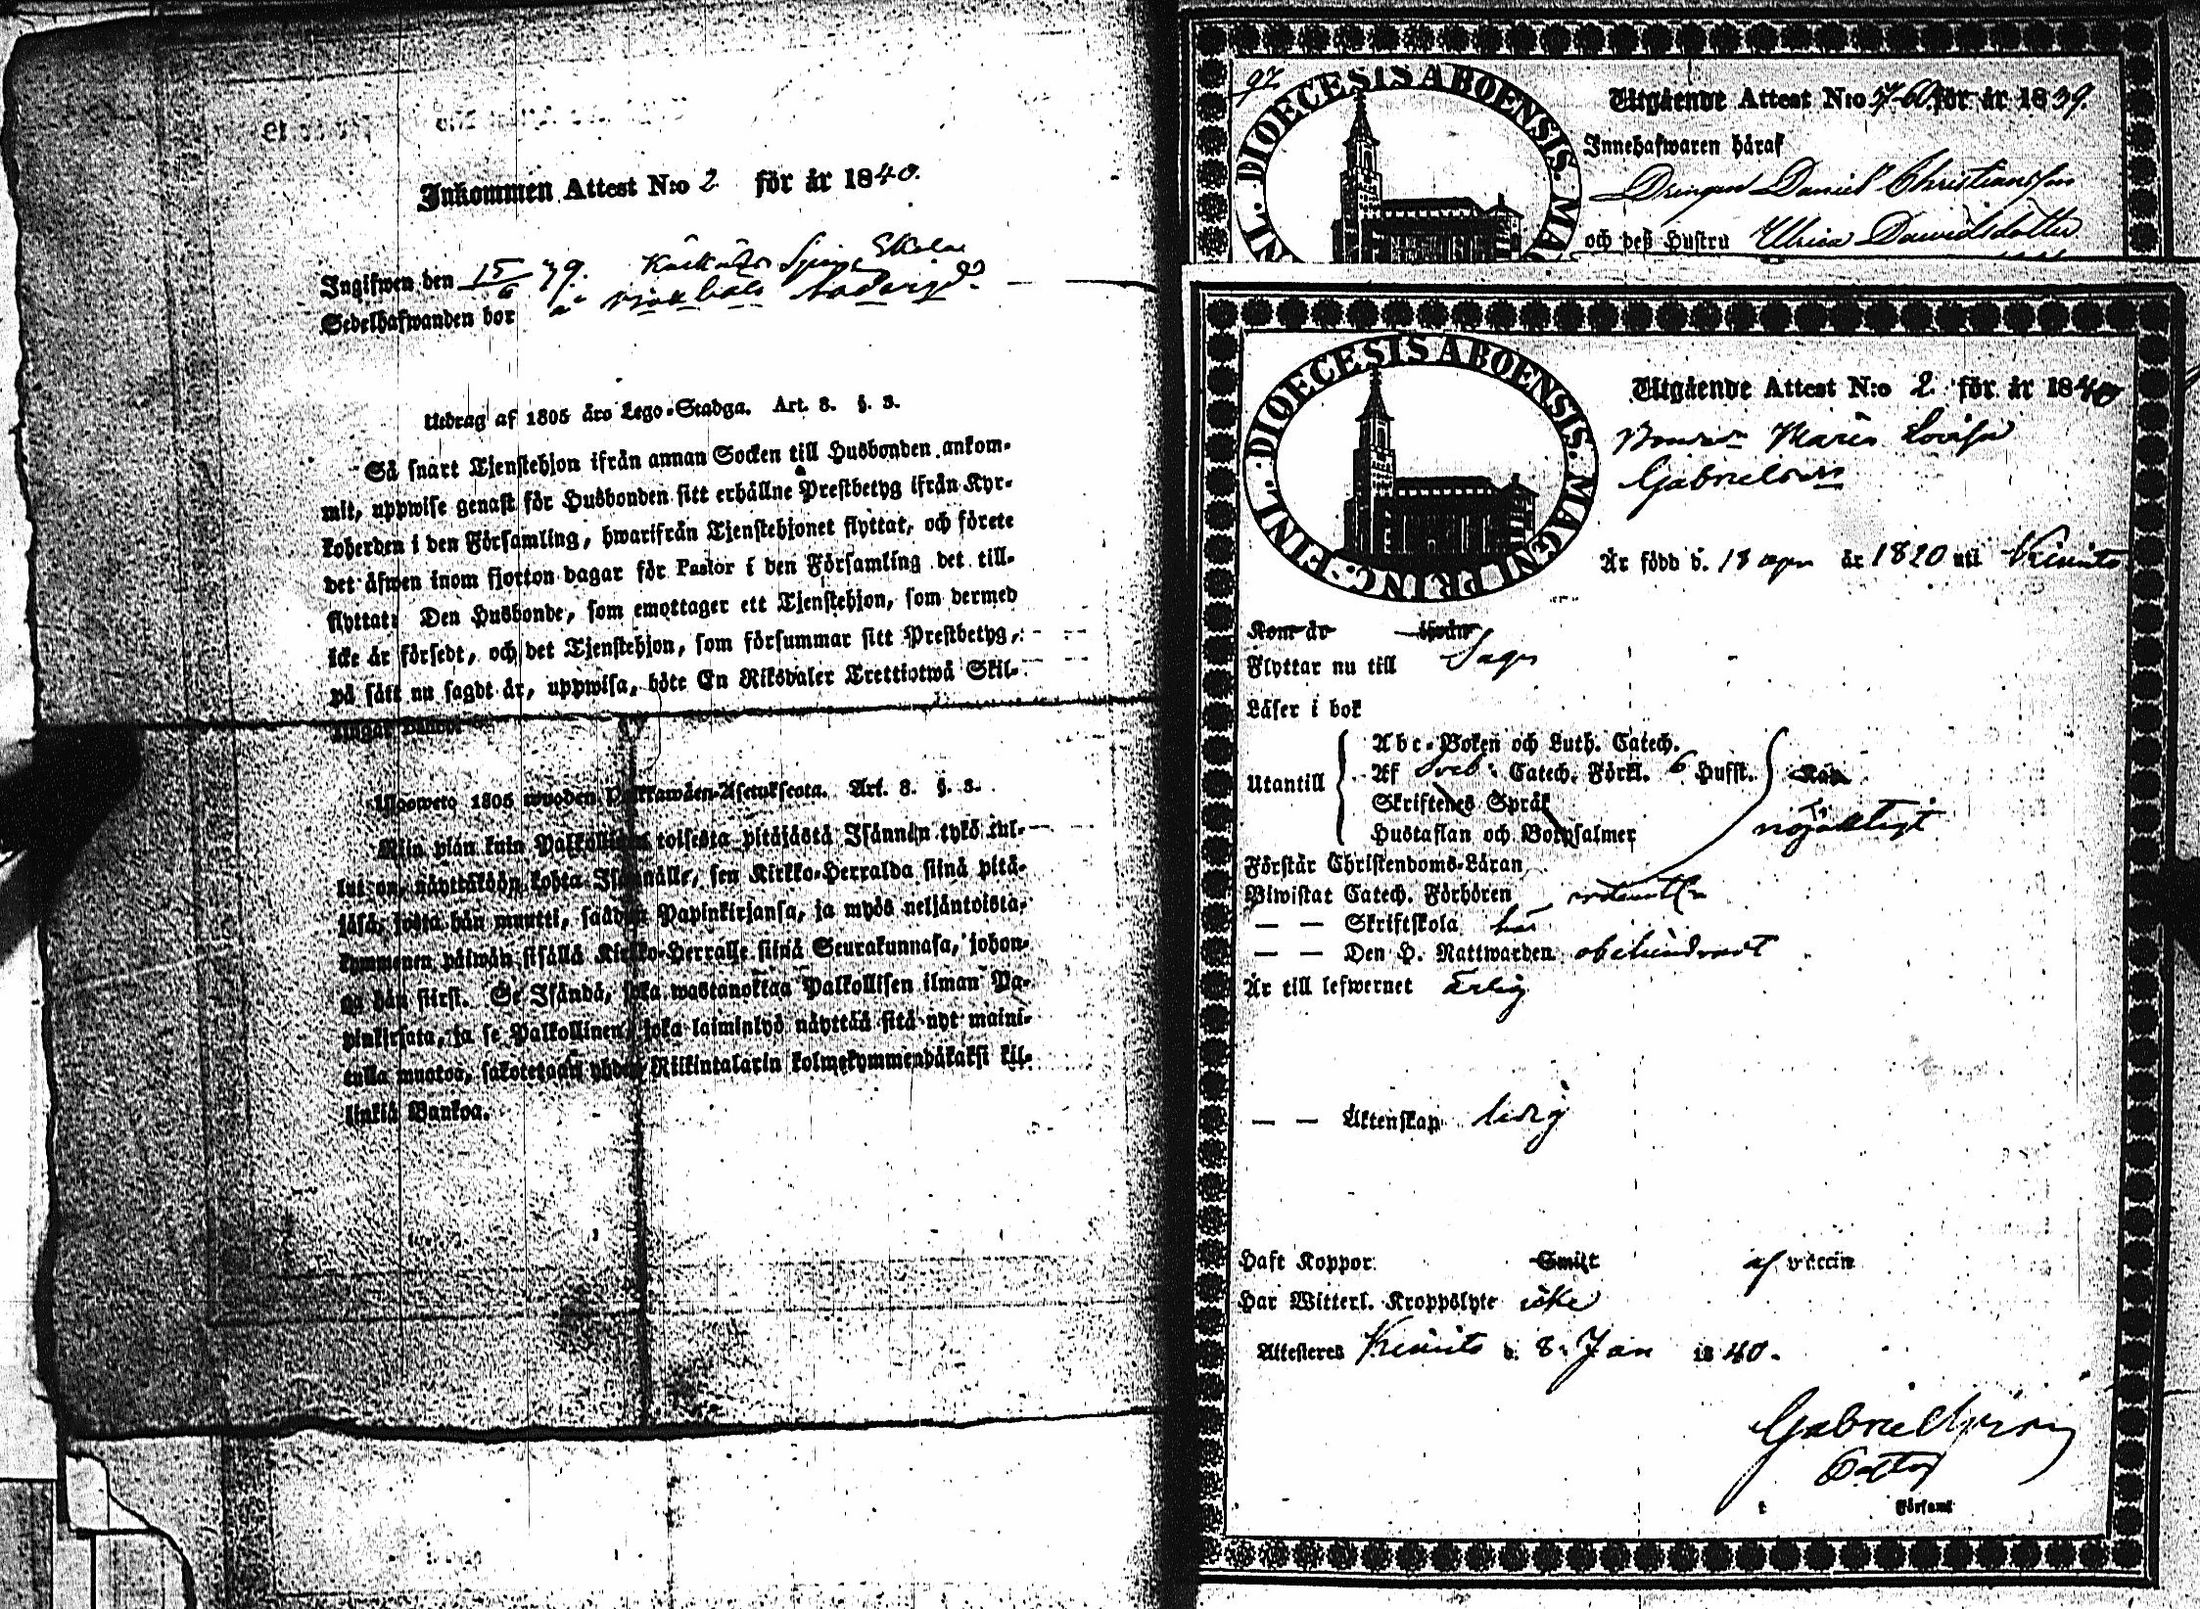 Inkommen Attest N:o 2 för år 1840.
Ingifwen den 15/6 39.
Sedelhafwanden bor
Utdrag af 1805 års Lego-Stadga. Art. 8. §. 3.
Så snart Tjenstehjon ifrån annan Socken till Husbonden ankom-
mit, uppwise genast för Husbonden sitt erhållne Prestbetyg ifrån Kyr-
koherden i den Församling, hwarifrån Tjenstehjonet flyttat, och förete
det äfwen inom fjorton dagar för Pastor i den Församling det till-
flyttat: Den Husbonde, som emottager ett Tjenstehjon, som dermed
icke är försedt, och det Tjenstehjon, som försummar sitt Prestbetyg,
på sätt nu sagdt är, uppwisa, böte En Riksdaler Trettiotwå Skil-
lingar Banco.
Ulosweto 1805 wuoden Palkkawäen-Asetuksesta. Art. 8. §. 3.
Niin pian kuin Palkollinen toisesta pitäjästä Isännän tykö tul-
lut on, näyttäköön kohta Isännälle, sen Kirkko-Herralda siinä pitä-
jäsä, josta hän muutti, saadun Papinkirjansa, ja myös neljäntoista-
kymmenen päiwän sisällä Kirkko-Herralle siinä Seurakunnasa, johon-
ga hän siirsi. Se Isändä, joka wastanottaa Palkollisen ilman Pa-
pinkirjata, ja se Palkollinen, joka laiminlyö näyttää sitä nyt maini-
tulla muotoa, sakotetaan yhden Riikintalarin kolmekymmendäkaksi kil-
linkiä Bankoa.
97
DIOECESIS ABOENSIS. MA
NL.
Utgående Attest N:o för år 1839.
Innehafwaren häraf
Drengen Daniel Christiansson
och deß Hustru Ulrica Davidsdotter
DIOECESIS ABOENSIS. MAGNI PRINC. FINL.
Utgående Attest N:o 2 för år 1840
Maria Lovisa
Gabrielsdr
Är född d. 18 apr år 1820 uti Kimito
Kom år ifrån
Flyttar nu till Sagu
Läser i bok
Utantill
Abc-Boken och Luth. Catech.
Af Sveb. Catech. Förkl. 6 Hufst. Kan
Skriftenes Språk
Hustaflan och Botpsalmer
nöjaktigt
Förstår Christendoms-Läran
Biwistat Catech. Förhören ordentl.
— — Skriftskola här
— — Den H. Nattwarden obehindradt
Är till lefwernet Ärlig
— — Äktenskap ledig
Haft Koppor Smitt af vaccin
Har Witterl. Kroppslyte icke
Attesteres Kimito d. 8 Jan 1840.
Gabriel
Pastor
i Förfaml